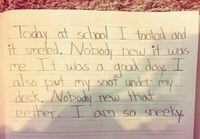 Today at school I tooted and
it smeled. Nobody new it was
me. It was a good day. I
also put my snot under my
desk. Nobody new that
eether. I am so sneeky.